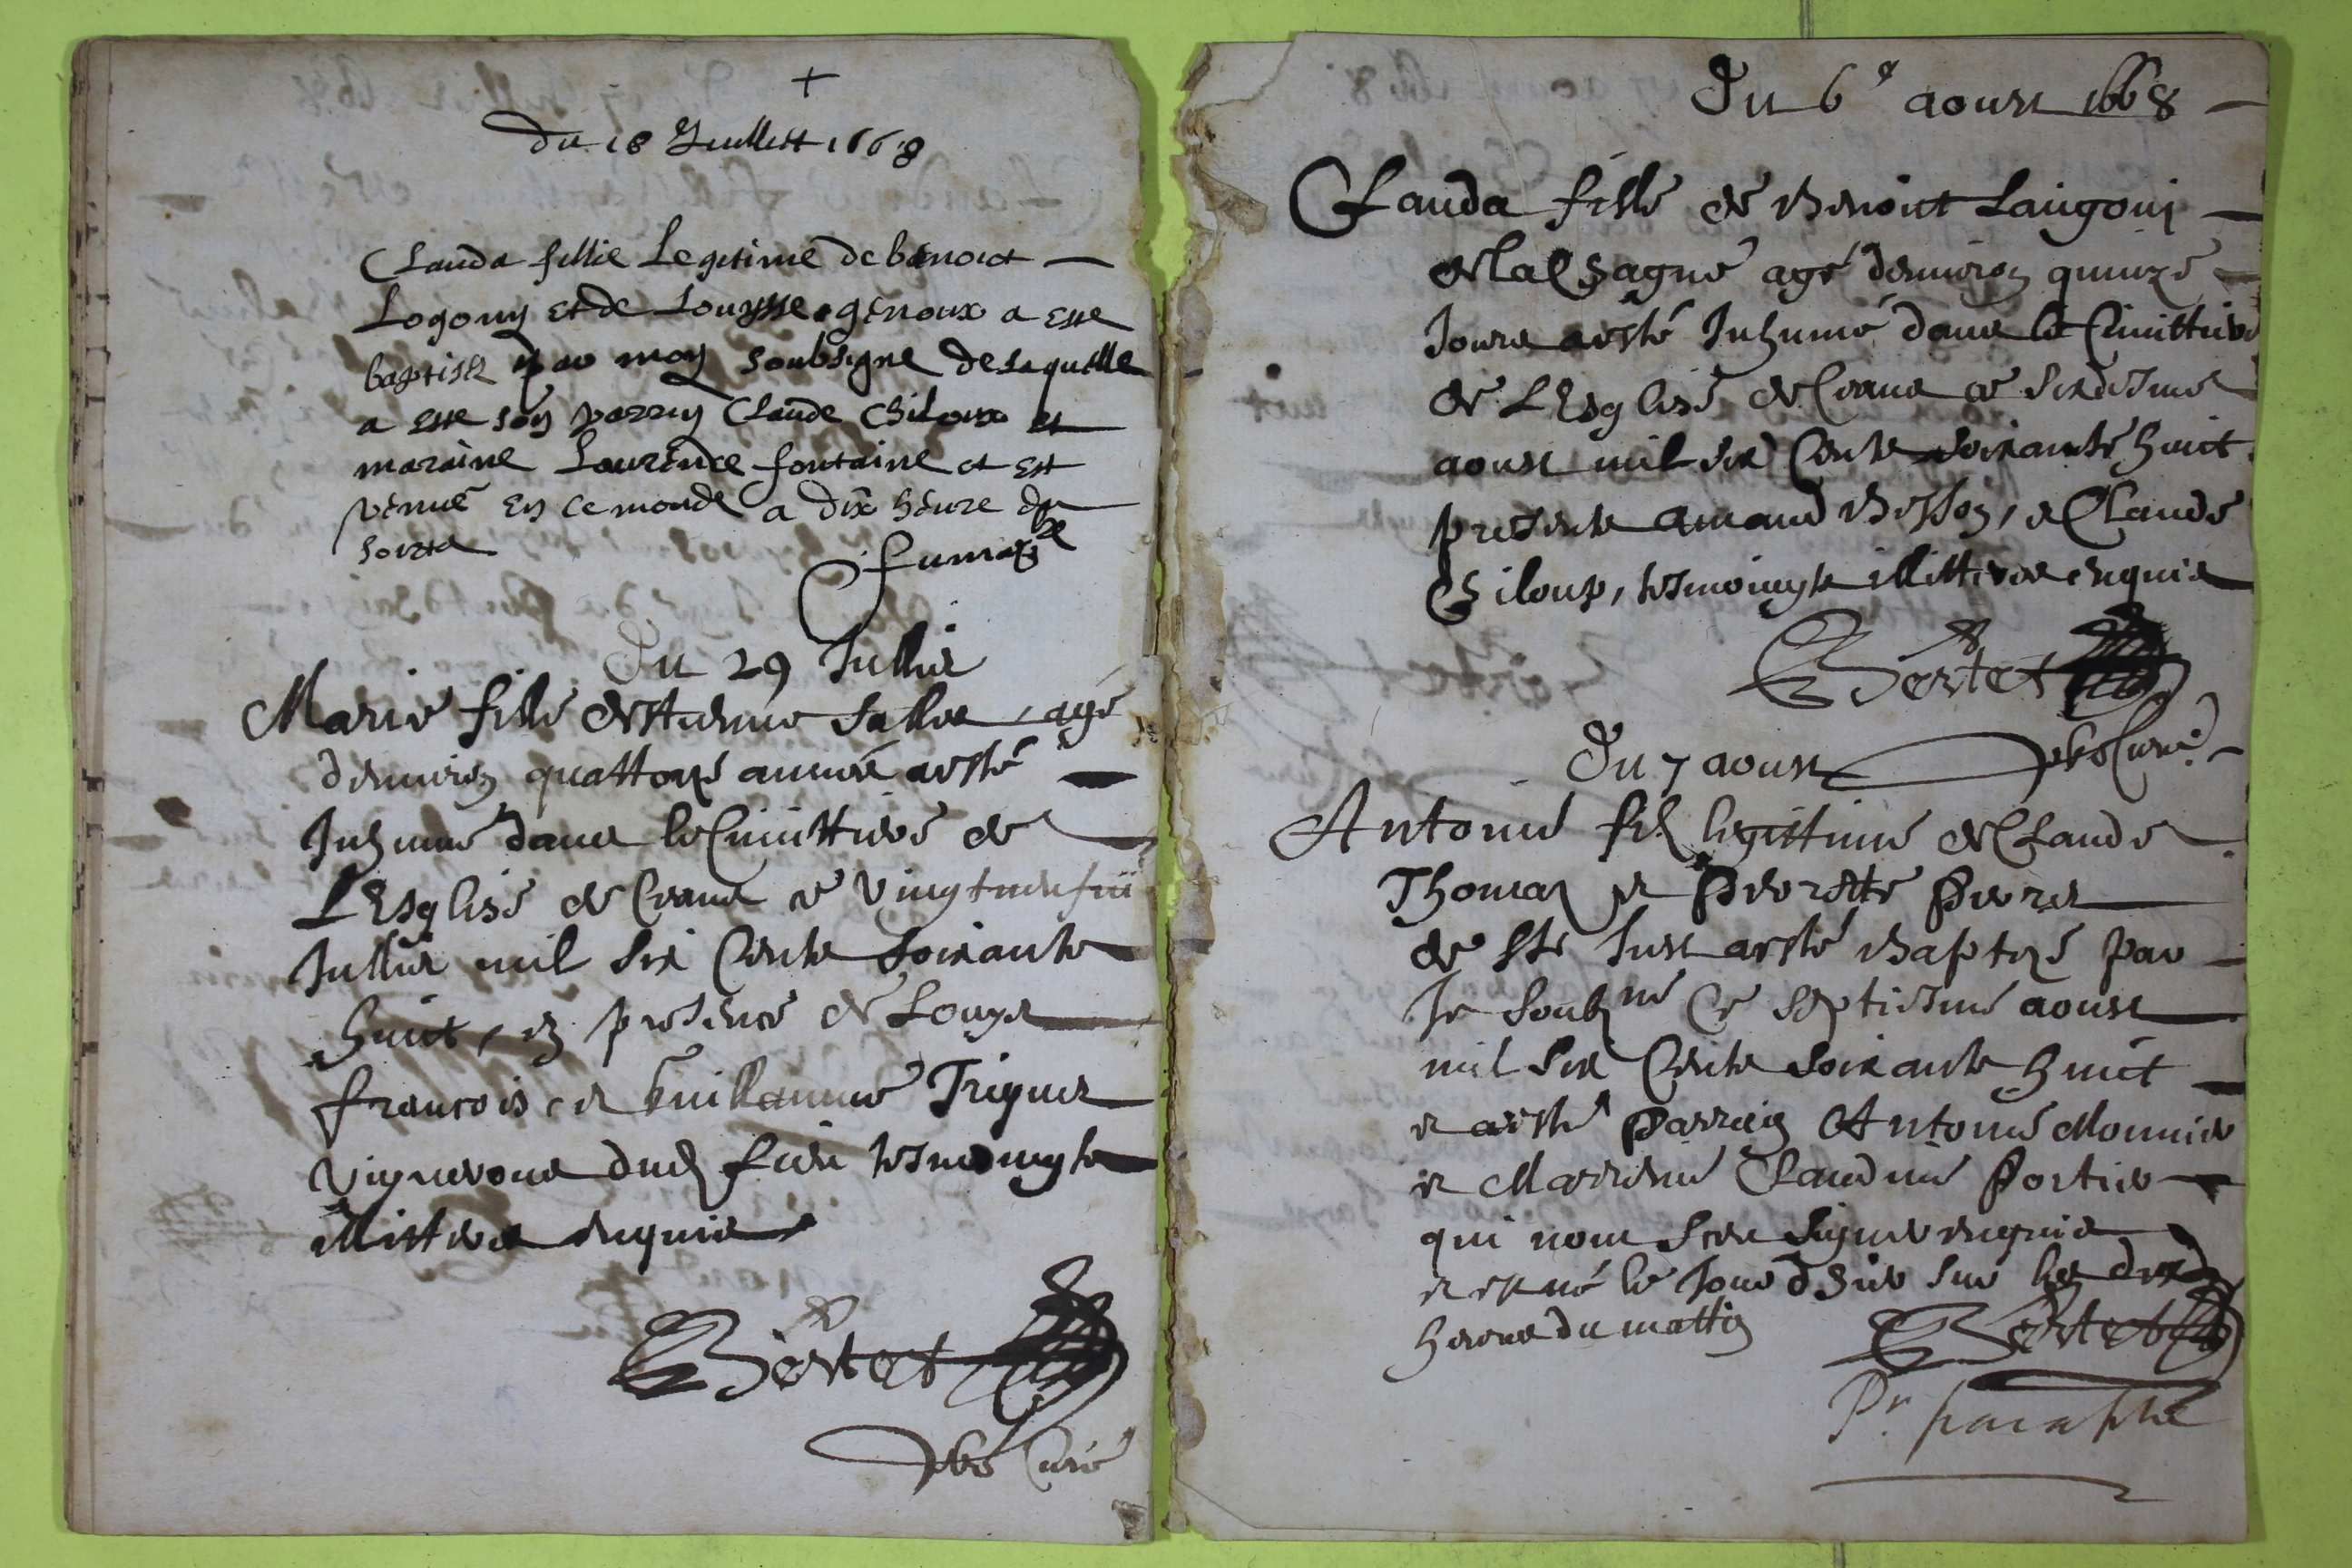 +
du 18 Juillett 1668
Clauda fillie Legitime de benoict
Logony et de Louysse genoux a este
baptise par moy soubsigne de laquelle
a este son parrin Claude Chiloux et
maraine Laurence fontaine et est
venue en ce monde a dix heure du
soir
Du 29 Jullie
Marie fille destienne Salles, agé
denuiron quattorze année a esté
Inhumé dans le Cimittiere de
LEsglise de Crane ce vingtneufui
Jullie mil six Cents soixante
huict, en presence de Louys
francois, et Guillaume Triquet
vignerons dud lieu tesmoingts
illitteres enquis
Bertet
pbr Curé
Du 6e aoust 1668
Clauda fille de Benoict Laugoni
de la Chagne agé denuiron quinze
Jours a esté Inhumé dans le Cimittiere
de LEsglise de Crane ce sixiesme
aoust mil six Cents soixante huict
presents Amand Besson, et Claude
Chiloup, tesmoingts illitteres enquis
Bertet
pbr Curé
Du 7 aoust
Antoine fils legittime de Claude
Thomas et Pierrette Pierre
de St Just a esté Baptizé par
Je soubsné Ce septiesme aoust
mil six Cents soixante huict
et a esté Parrain Antoine Monnier
et Marrenne Claudine Portier
qui nont sceu signer enquis
et est né le Jour dhier sur les dix
heures du mattin
Bertet
Pr. paraphe